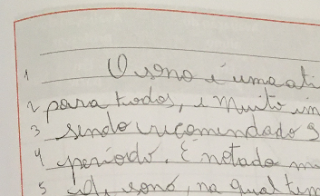 1 O sono é uma ati
2 para todos, é muito im
3 sendo recomendado 9
4 período. É notado mu
5 sono, na qual tem